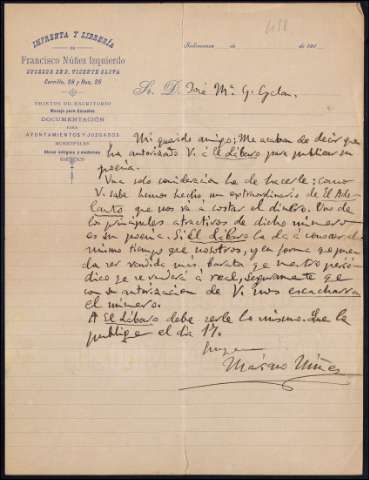 438
IMPRENTA Y LIBRERÍA
DE
Francisco Núñez Izquierdo
SUCESOR DE D. VICENTE OLIVA
OBJETOS DE ESCRITORIO
Menaje para Escuelas
DOCUMENTACIÓN
PARA
AYUNTAMIENTOS Y JUZGADOS
MUNICIPALES
Obras antiguas y modernas
Salamanca de de 190
Sr. D. José Mª G. Galan.
Mi querido amigo; Me acaban de decir que
ha autorizado V. á El Lábaro para publicar su
poesía.
Una sola consideración he de hacerle; como
V. sabe hemos hecho un extraordinario de El Ade-
lanto que nos vá á costar el dinero. Uno de
los principales atractivos de dicho número
es su poesía. Si El Lábaro la dá á conocer al
mismo tiempo que nosotros, y en forma que pue-
da ser vendida más barata que nuestro perió-
dico que se venderá á real, seguramente que
con su autorización de V. nos escacharra
el número.
A El Lábaro debe serle lo mismo que la
publique el día 17.
Mariano Núñez